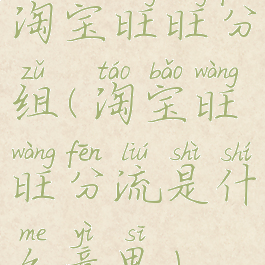 淘宝旺旺分
zǔ táo bǎo wàng
组(淘宝旺
wàng fēn liú shì shí
旺分流是什
me yì sī
么意思)